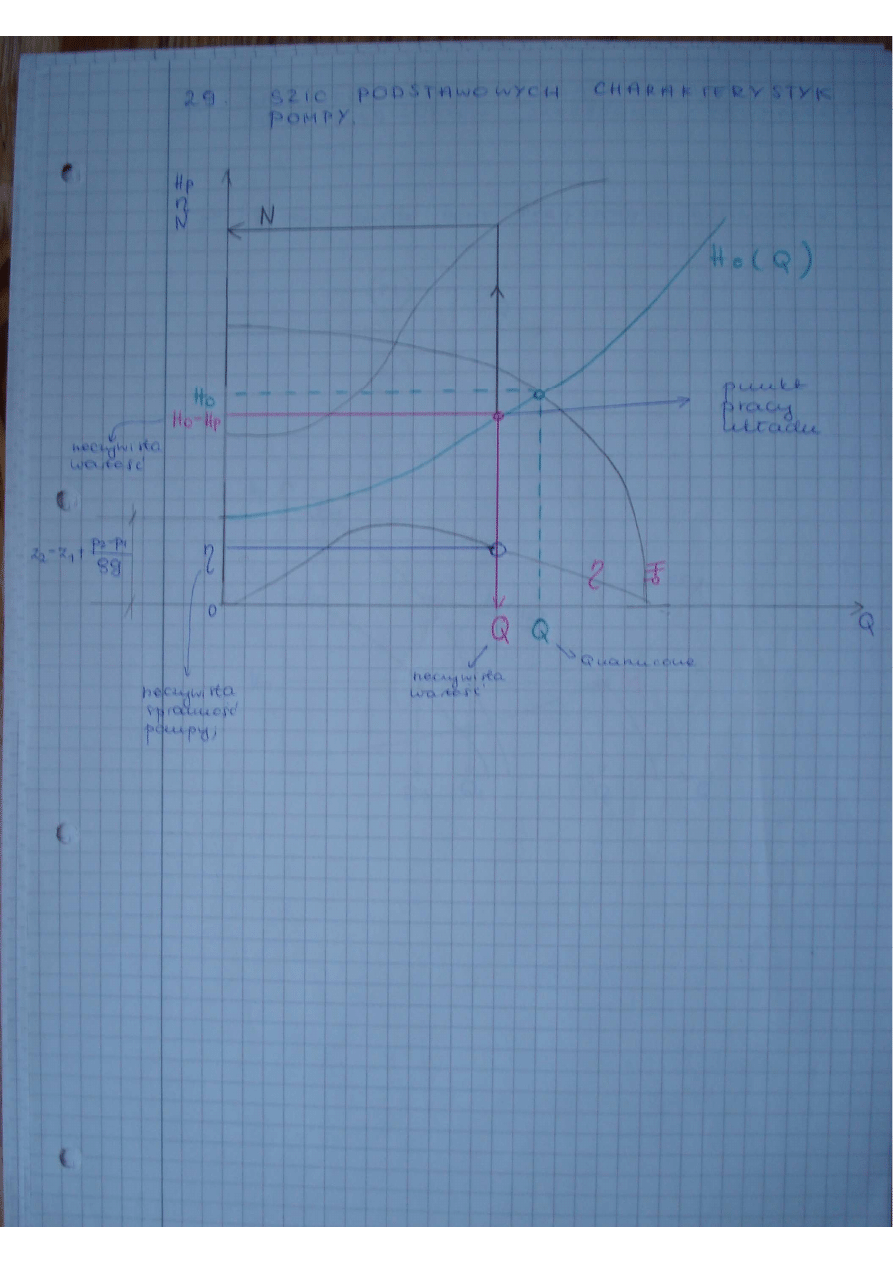 29. SZIC PODSTAWOWYCH CHARAKTERYSTYK
POMPY.
Hp
η
N
N
Ho(Q)
Ho
Ho-Hp
punkt
pracy
układu
rzeczywista
wartość
z₂-z₁+ p₂-p₁/ρg
η
η
Hp
0
Q
Q
Q
Qgraniczne
rzeczywista
wartość
rzeczywista
sprawność
pompy